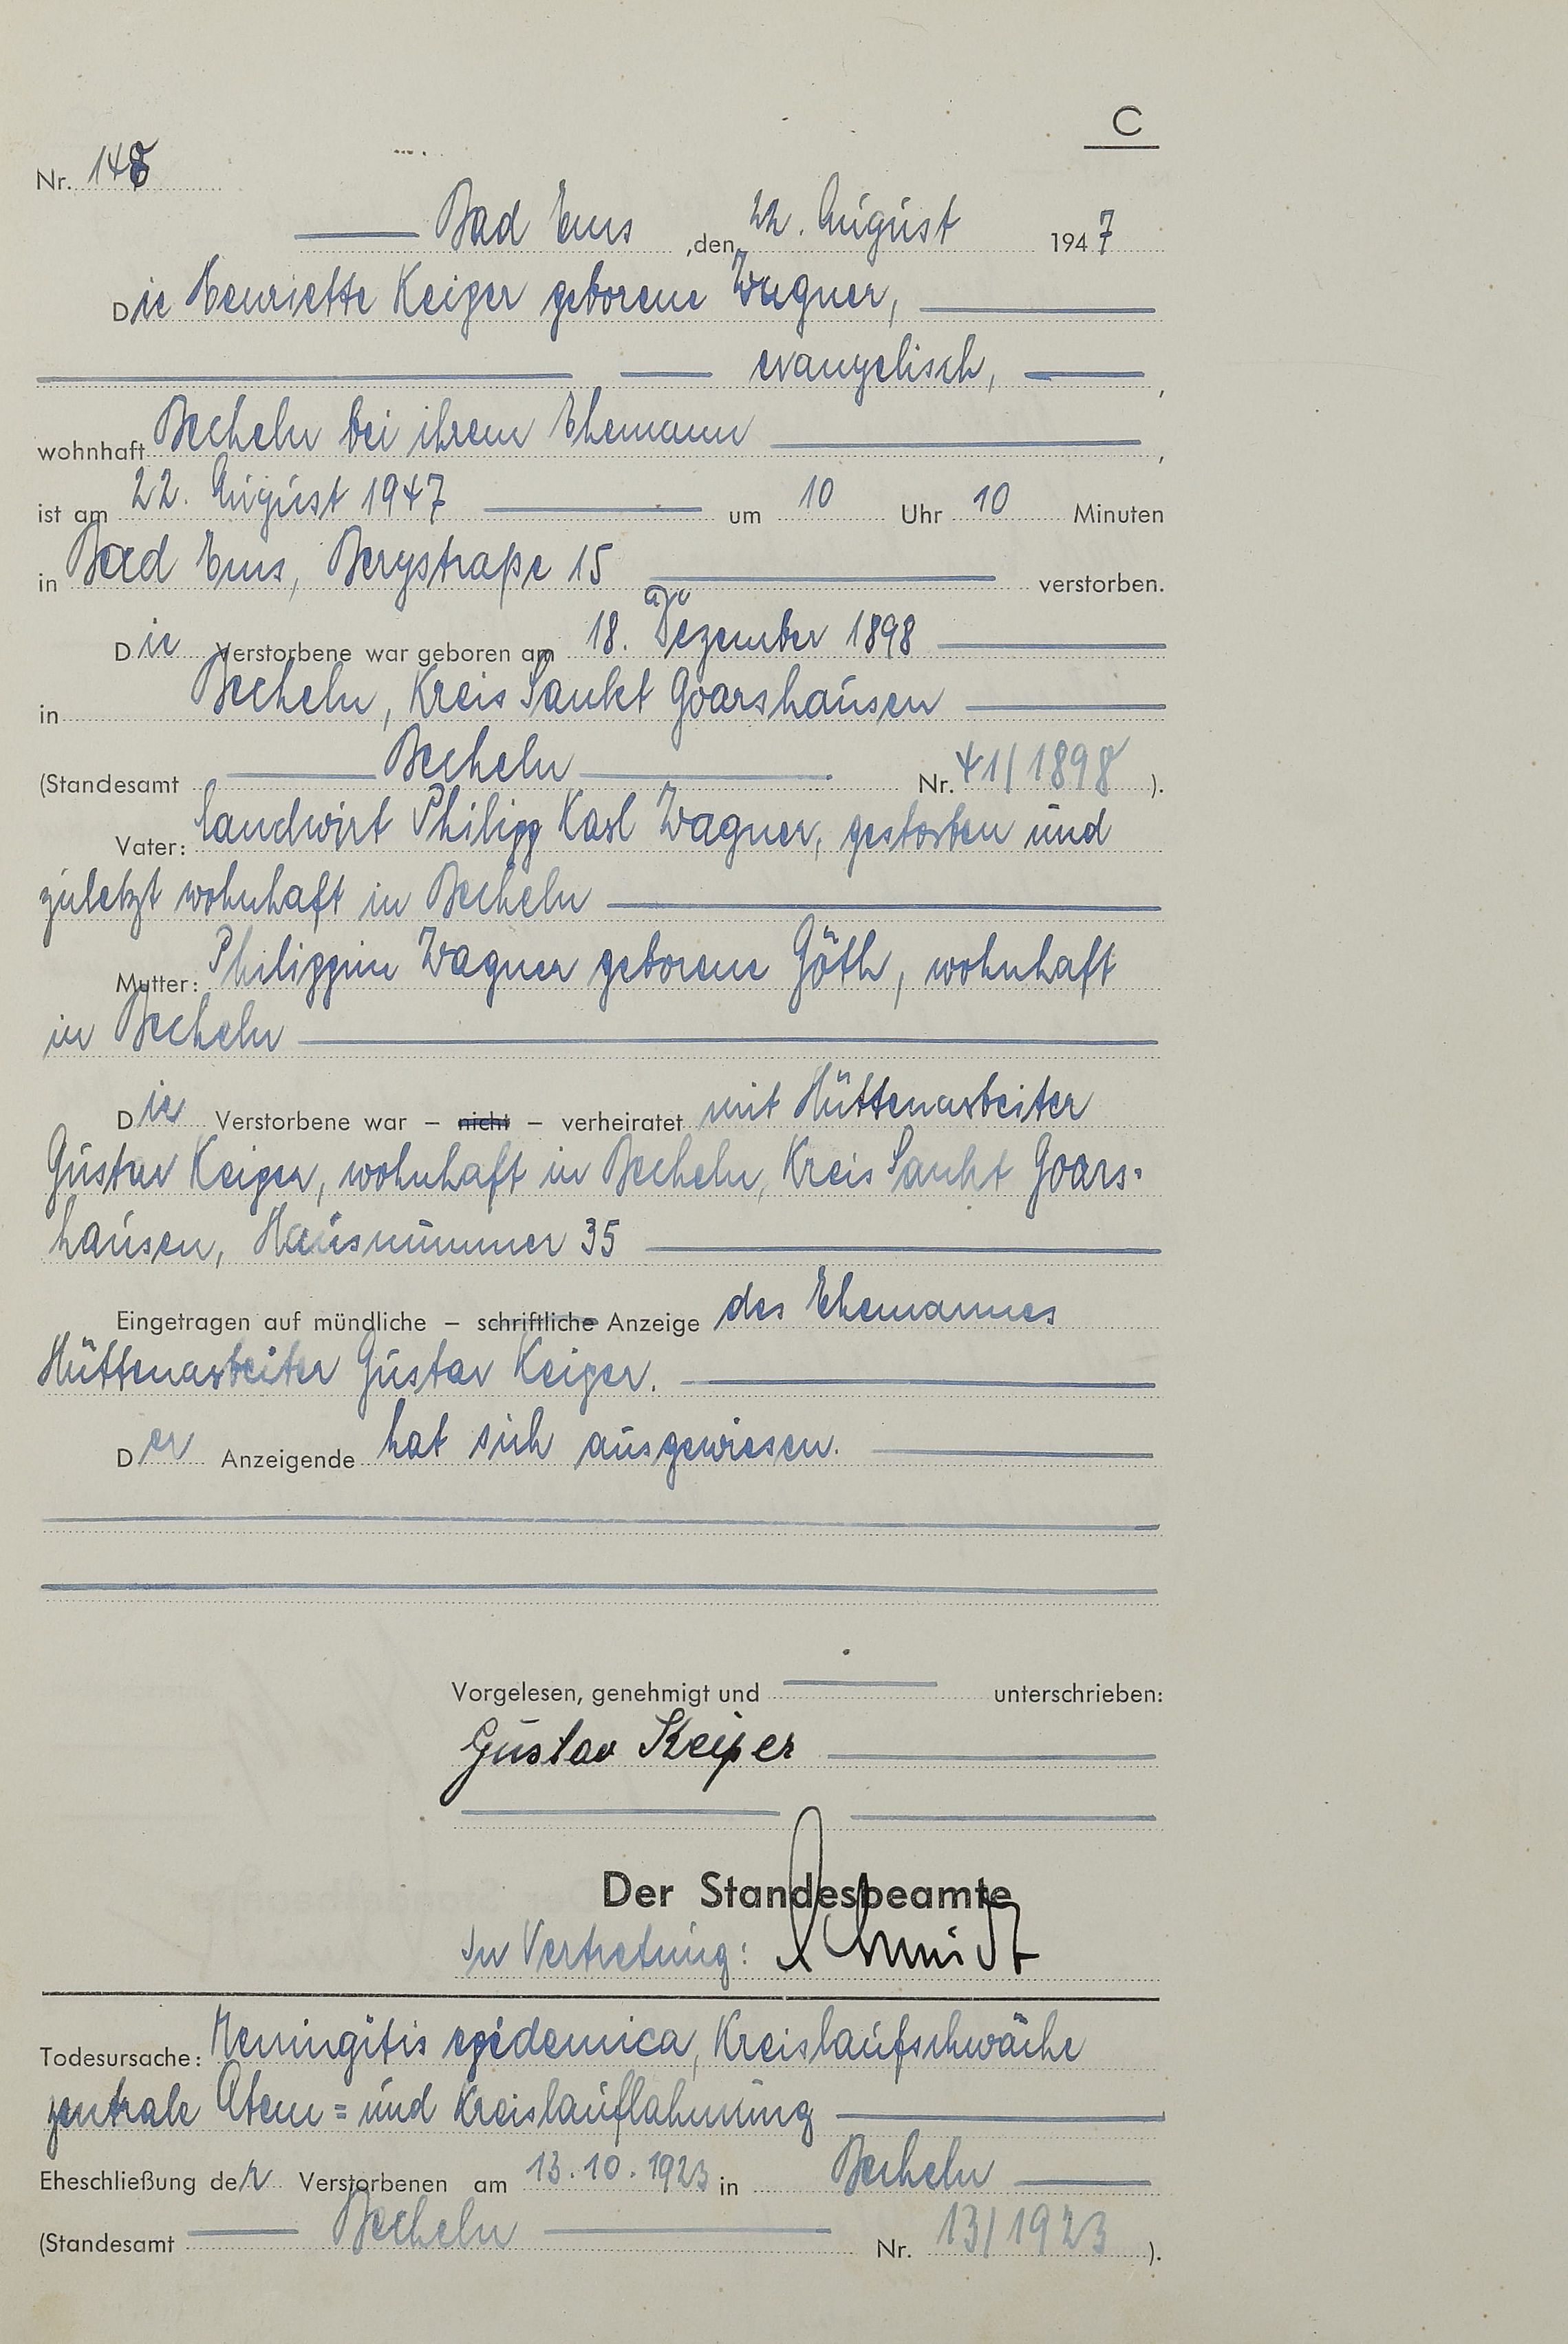 C
Nr. 148
Bad Ems, den 22. August 1947
Die Henriette Keiper geborene Wagner,
evangelisch,,
wohnhaft Becheln bei ihrem Ehemann,
ist am 22. August 1947 um 10 Uhr 10 Minuten
in Bad Ems, Bergstraße 15 verstorben.
Die Verstorbene war geboren am 18. Dezember 1898
in Becheln, Kreis Sankt Goarshausen
(Standesamt Becheln Nr. 41/1898).
Vater: Landwirt Philipp Karl Wagner, gestorben und
zuletzt wohnhaft in Becheln
Mutter: Philippine Wagner geborene Göth, wohnhaft
in Becheln
Die Verstorbene war – nicht – verheiratet mit Hüttenarbeiter
Gustav Keiper, wohnhaft in Becheln, Kreis Sankt Goars=
hausen, Hausnummer 35
Eingetragen auf mündliche – schriftliche Anzeige des Ehemannes
Hüttenarbeiter Gustav Keiper.
Der Anzeigende hat sich ausgewiesen.
Vorgelesen, genehmigt und unterschrieben:
Gustav Keiper
Der Standesbeamte
In Vertretung: Schmidt
Todesursache: Meningitis epidemica, Kreislaufschwäche
zentrale Atem= und Kreislauflähmung
Eheschließung der Verstorbenen am 13.10.1923 in Becheln
(Standesamt Becheln Nr. 13/1923).